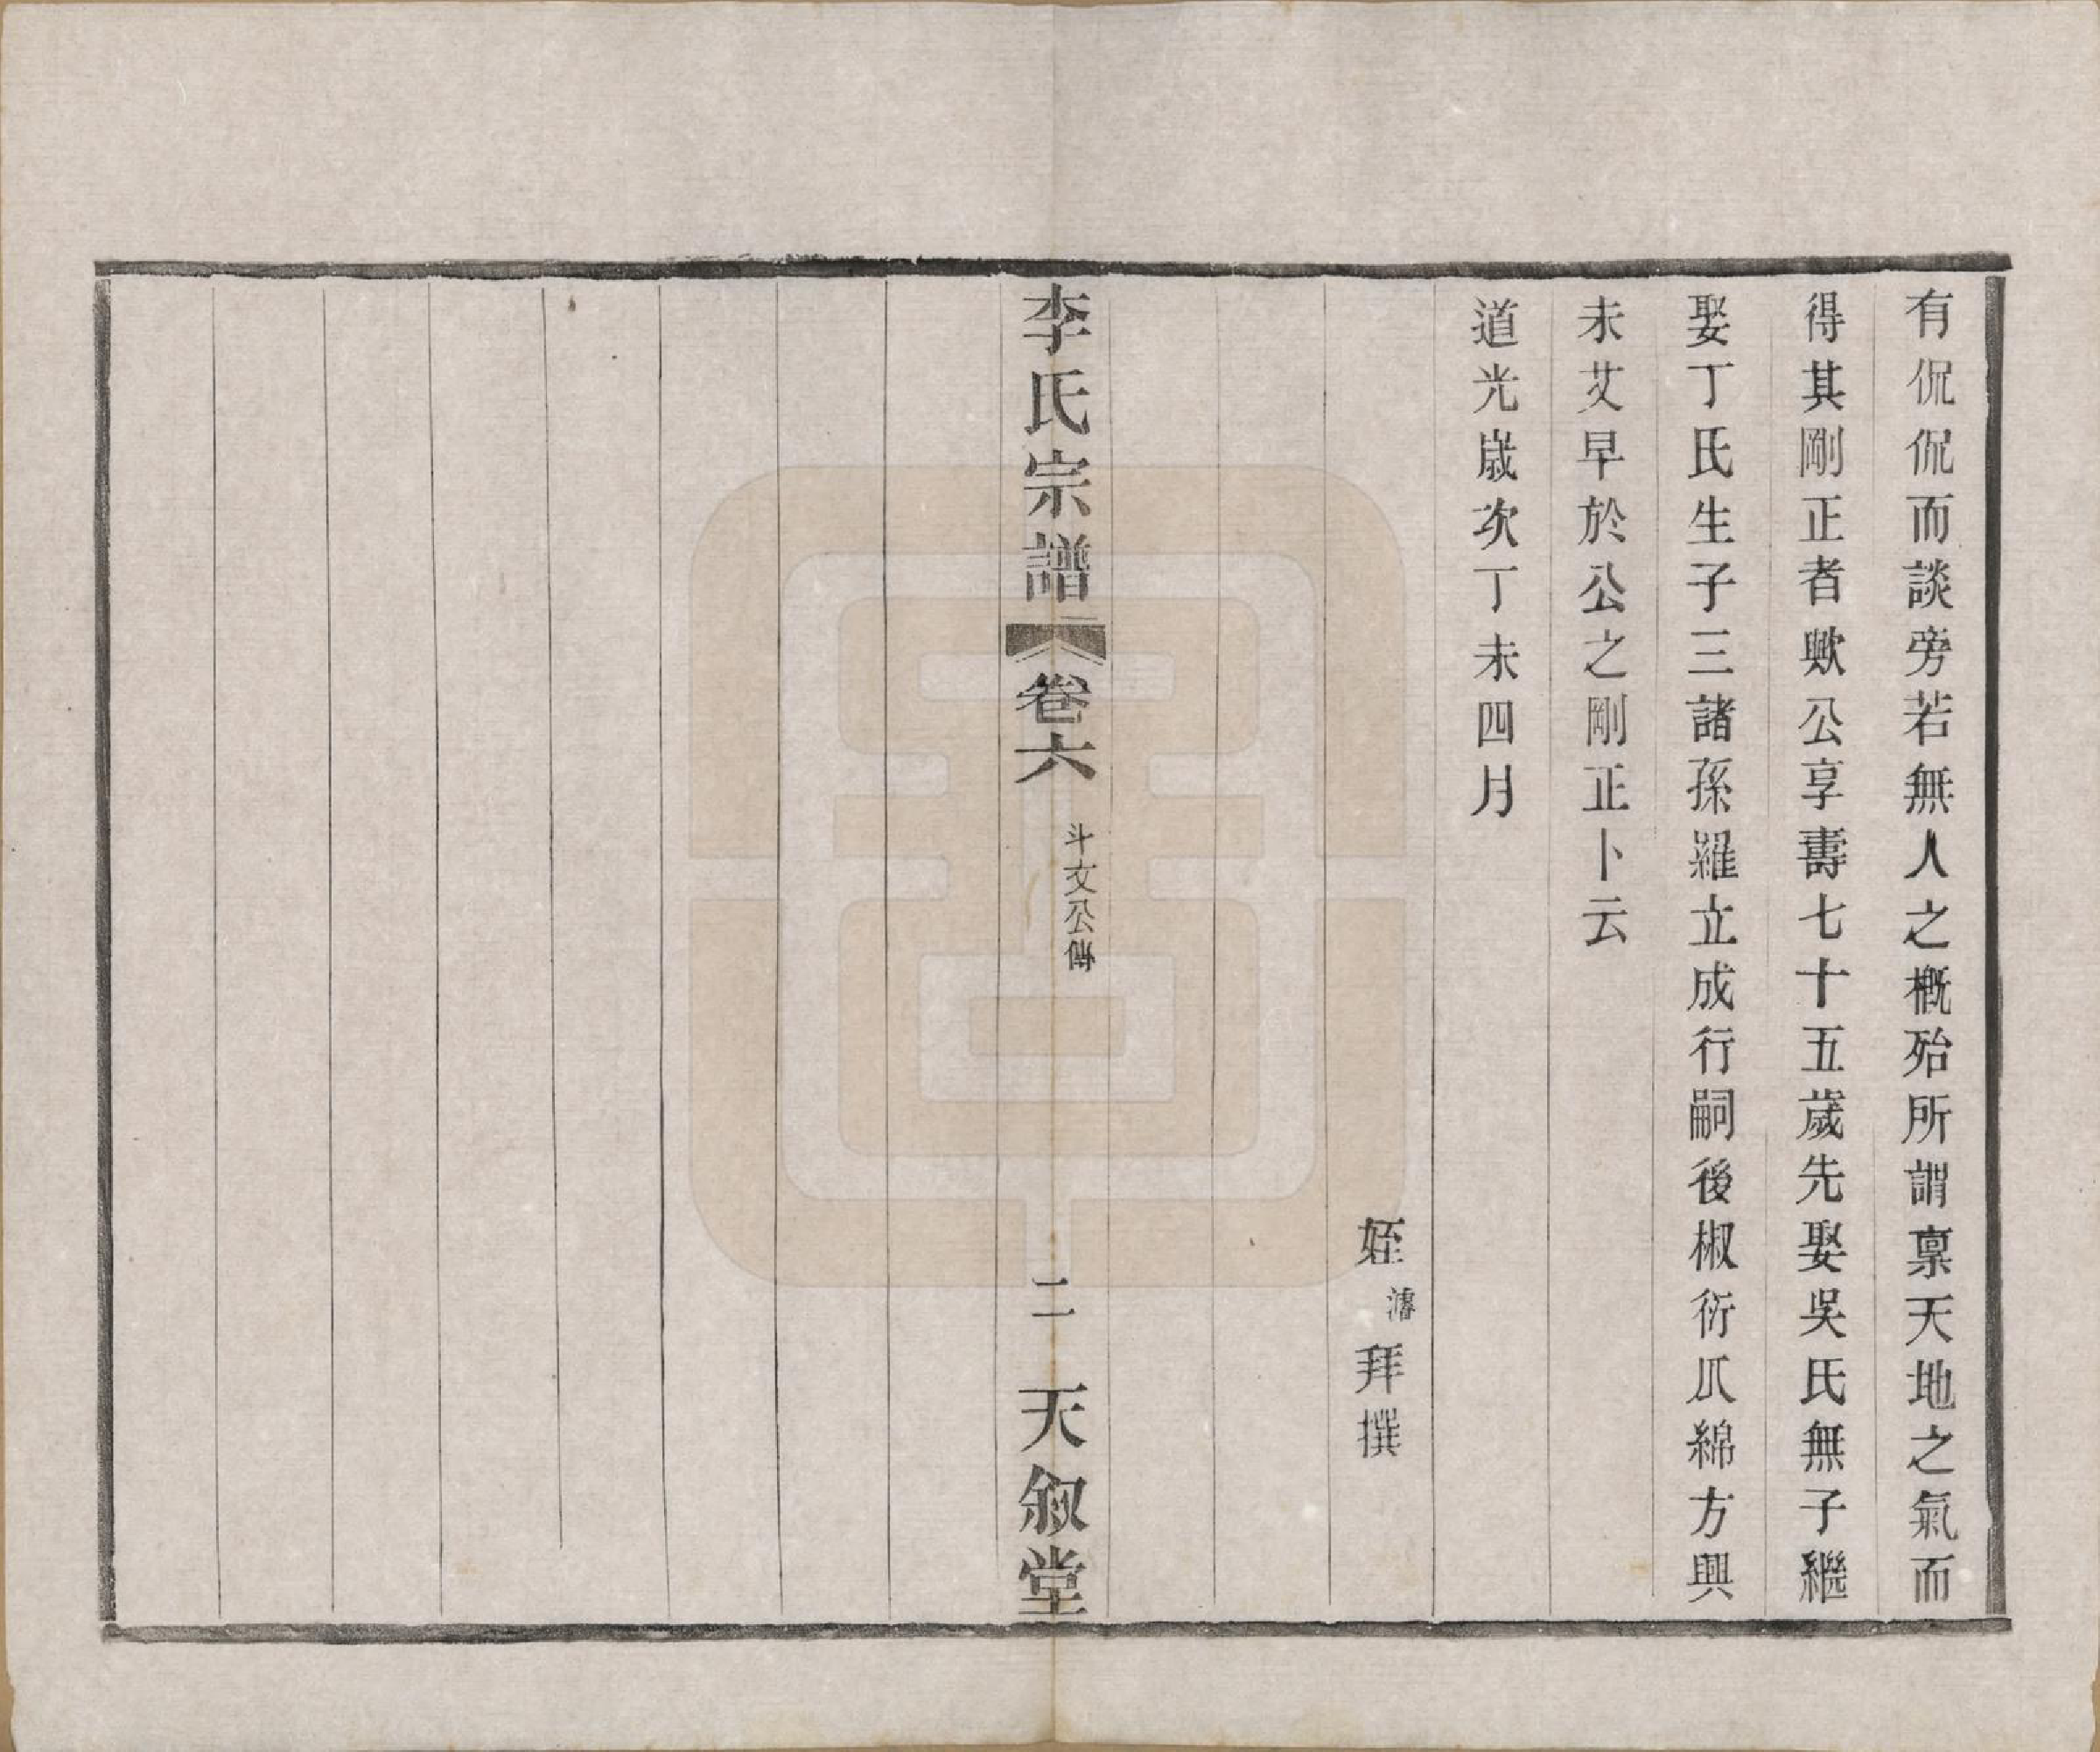 有侃侃而談旁若無人之概殆所謂禀天地之氣而
得其剛正者歟公享壽七十五歲先娶吳氏無子繼
娶丁氏生子三諸孫羅立成行嗣後椒衍瓜綿方興
未艾早於公之剛正卜云
道光歲次丁未四月
姪濬拜撰
李氏宗譜
卷六
斗文公傳
二
天叙堂